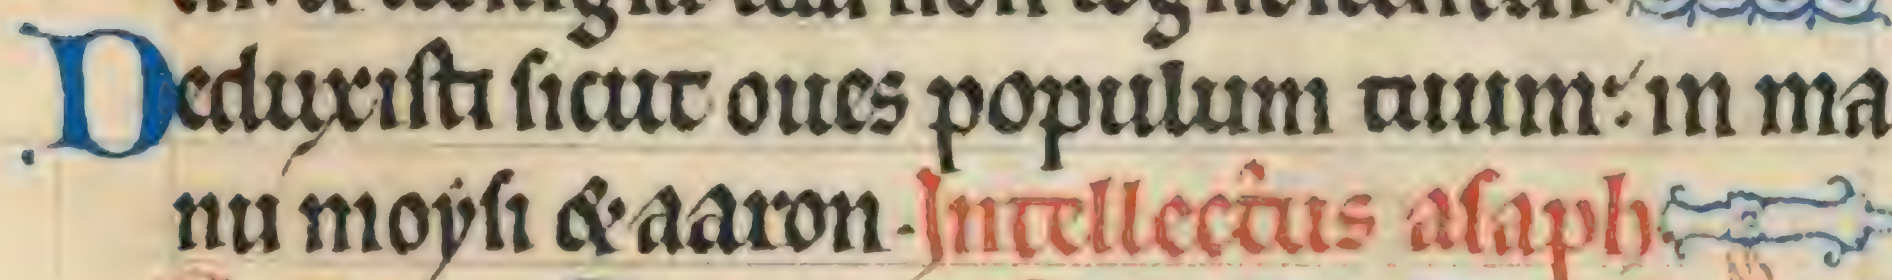 non cognoscentur.
Deduxisti sicut oues populum tuum: in ma
nu moysi & aaron. Intellectus asaph